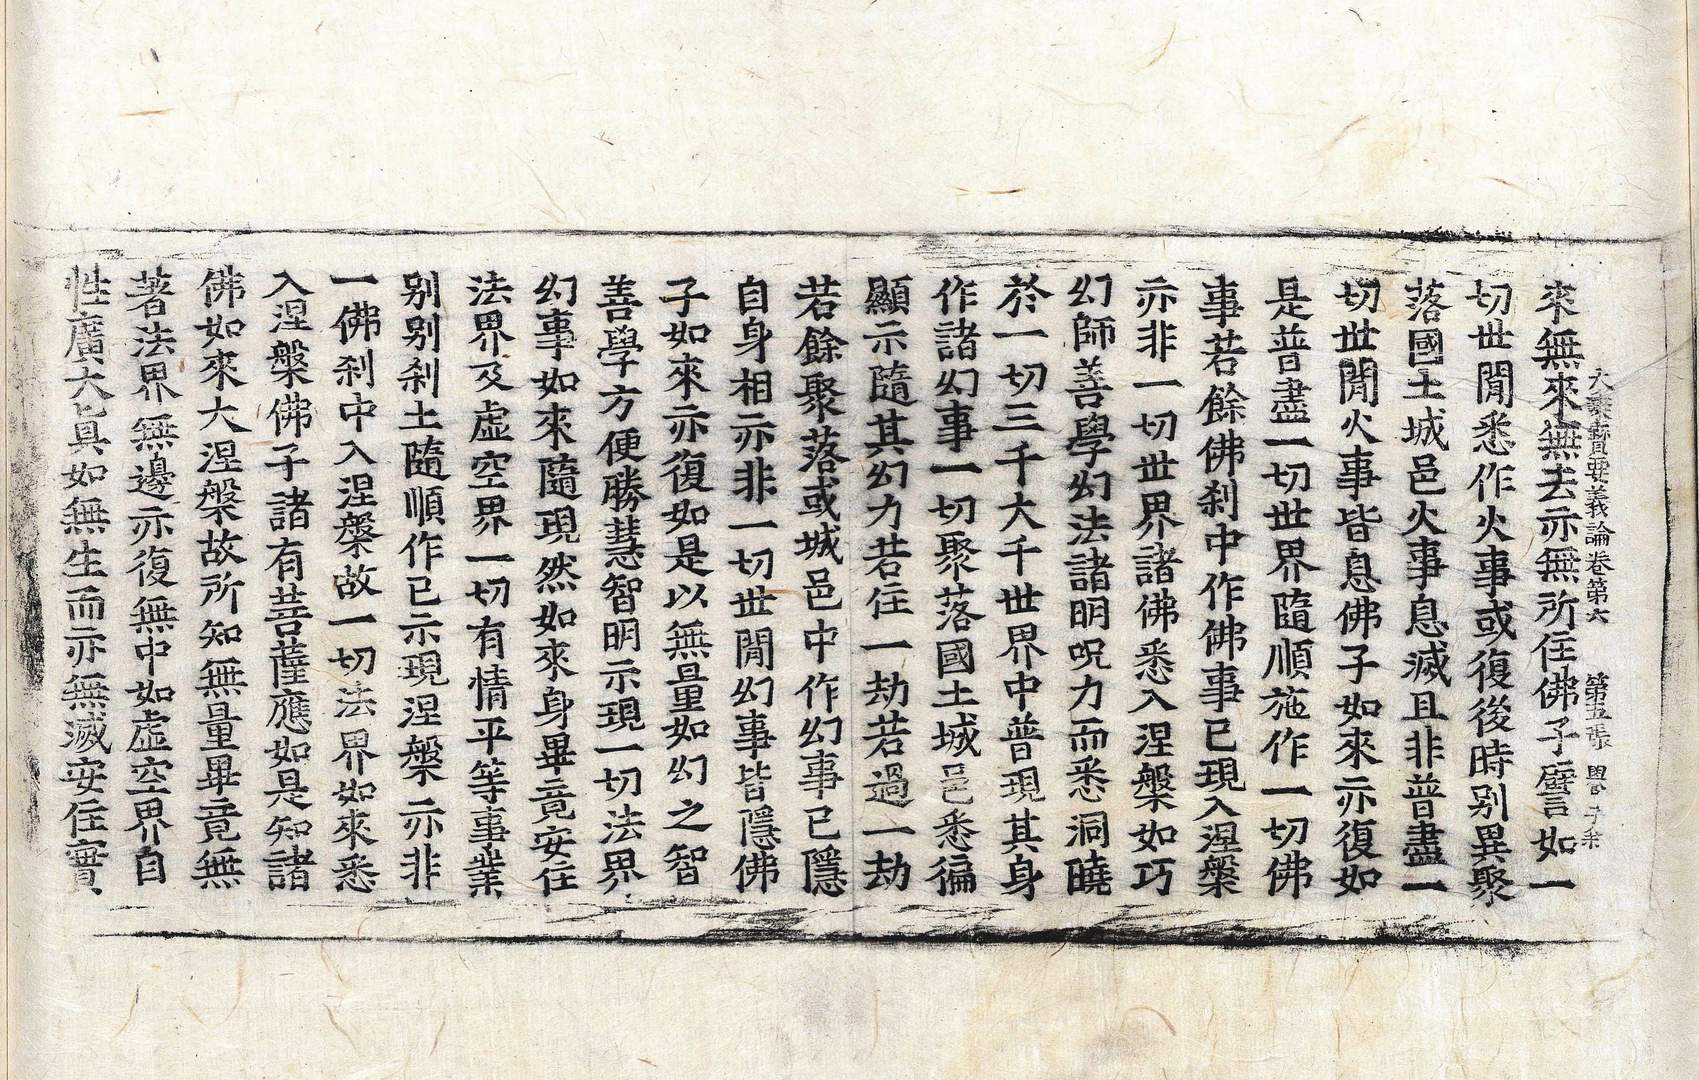 大乘寶要義論卷第六 第五張
來無來無去亦無所住佛子譬如一
切世閒悉作火事或復後時别異聚
落國土城邑火事息滅且非普盡一
切世閒火事皆息佛子如來亦復如
是普盡一切世界隨順施作一切佛
事若餘佛刹中作佛事已現入涅槃
亦非一切世界諸佛悉入涅槃如巧
幻師善學幻法諸明呪力而悉洞曉
於一切三千大千世界中普現其身
作諸幻事一切聚落國土城邑悉徧
顯示隨其幻力若住一劫若過一劫
若餘聚落或城邑中作幻事已隱
自身相亦非一切世閒幻事皆隱佛
子如來亦復如是以無量如幻之智
善學方便勝慧智明示現一切法界
幻事如來隨現然如來身畢竟安住
法界及虛空界一切有情平等事業
别别刹土隨順作已示現涅槃亦非
一佛刹中入涅槃故一切法界如來悉
入涅槃佛子諸有菩薩應如是知諸
佛如來大涅槃故所知無量畢竟無
著法界無邊亦復無中如虛空界自
性廣大眞如無生而亦無滅安住實